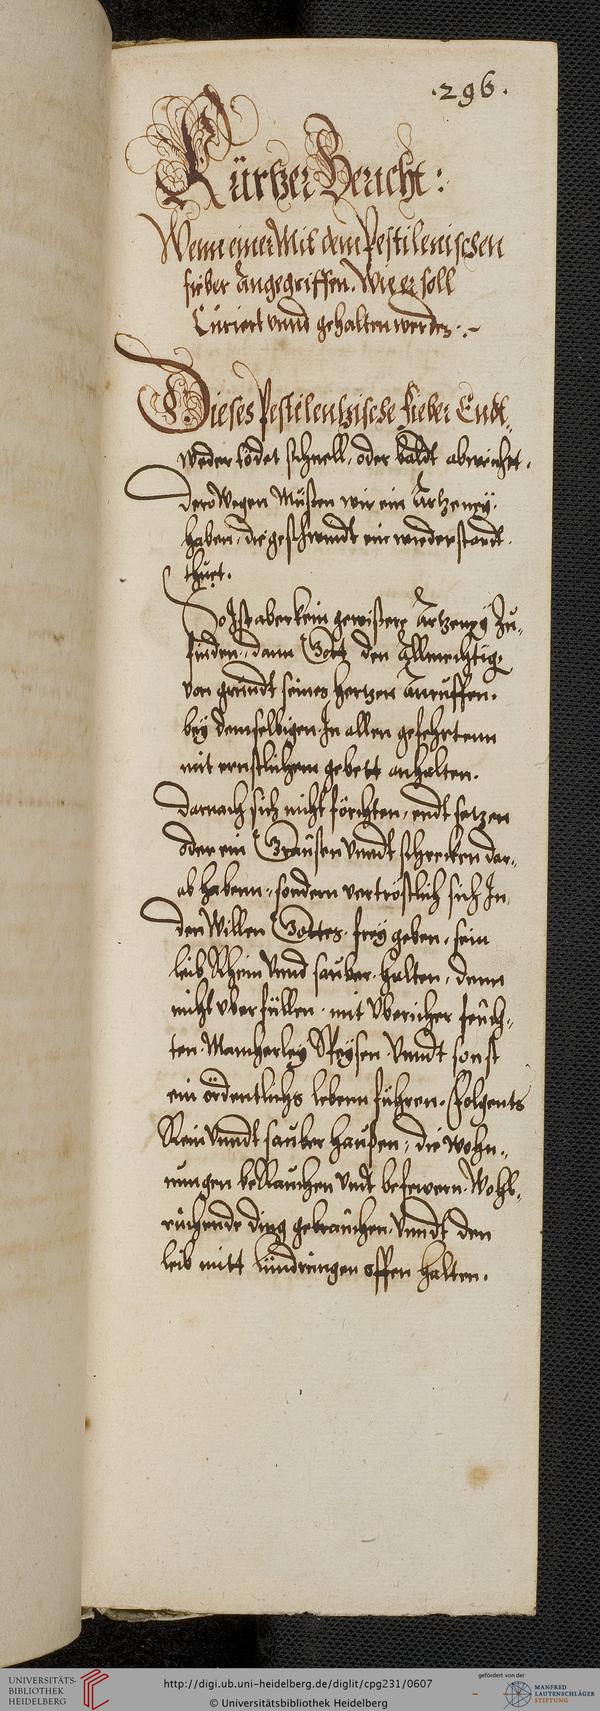 .296.
Kürtzer Bericht:
Wenn einer Mit dem Pestilenischen
fieber Angegriffen. Wie er soll
Curiert vnnd gehalten werdes :.~
Dieses Pestilentzische fieber Endt„
weder tödet schnell, oder baldt abwirhet.
dero Wegen Müßen wir ein Artzeney.
haben, die geschwindt ein wiederstandt.
thuet.
So Ist aber kein gewißere Artzeney Zu„
finden, dann Gott den Allmechtigs
von grundt seines hertzen Anruffen.
bey demselbigen In allen gefehrtenn
mit ernstlichem gebett anhalten.
darnach sich nicht förchten, endt setzen
oder ein Graußen Vnndt schrecken dar„
ab habenn, sondern vertröstlich sich In
den Willen Gottes frey geben, sein
leib Rhein Vnnd sauber halten, denn
nicht vberfüllen, mit Vbericher feuch„
ten Mancherley Speysen Vnndt sonst
ein ördentlichs lebenn führen. Folgents
Rein Vnndt sauber haußen, die wohn„
nungen beRauchen Vndt befewern. Wohl„
ruchende ding gebrauchen, Vnndt den
leib mitt lindrungen offen halten.
UNIVERSITÄTS-
BIBLIOTHEK
HEIDELBERG
http://digi.ub.uni-heidelberg.de/diglit/cpg231/0607
© Universitätsbibliothek Heidelberg
gefördert von der
MANFRED
LAUTENSCHLÄGER
STIFTUNG